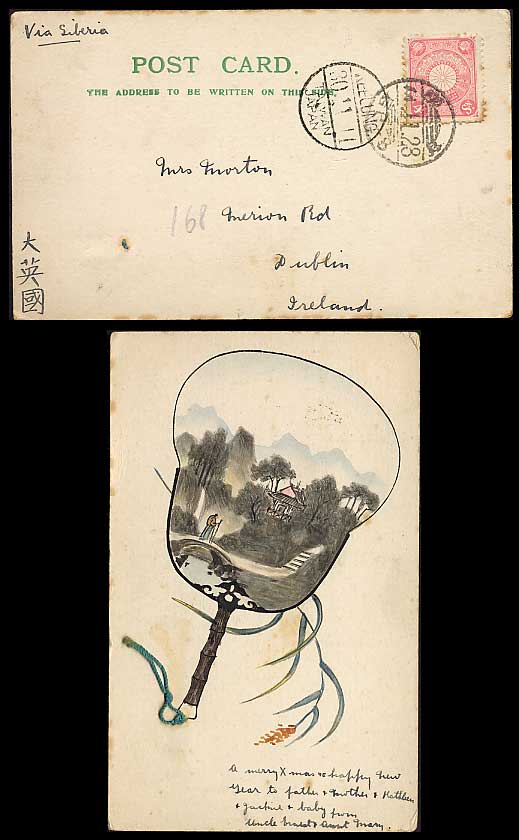 Via Siberia
POST CARD.
THE ADDRESS TO BE WRITTEN ON THIS SIDE.
KEELUNG
30.11.11
TAIWAN
JAPAN
Mrs Morton
168
Merion Rd
Dublin
Ireland.
大英國
A merry Xmas & happy New
Year to father & mother & Kathleen
& Jackie & baby from
Uncle Ernest & Aunt Mary.